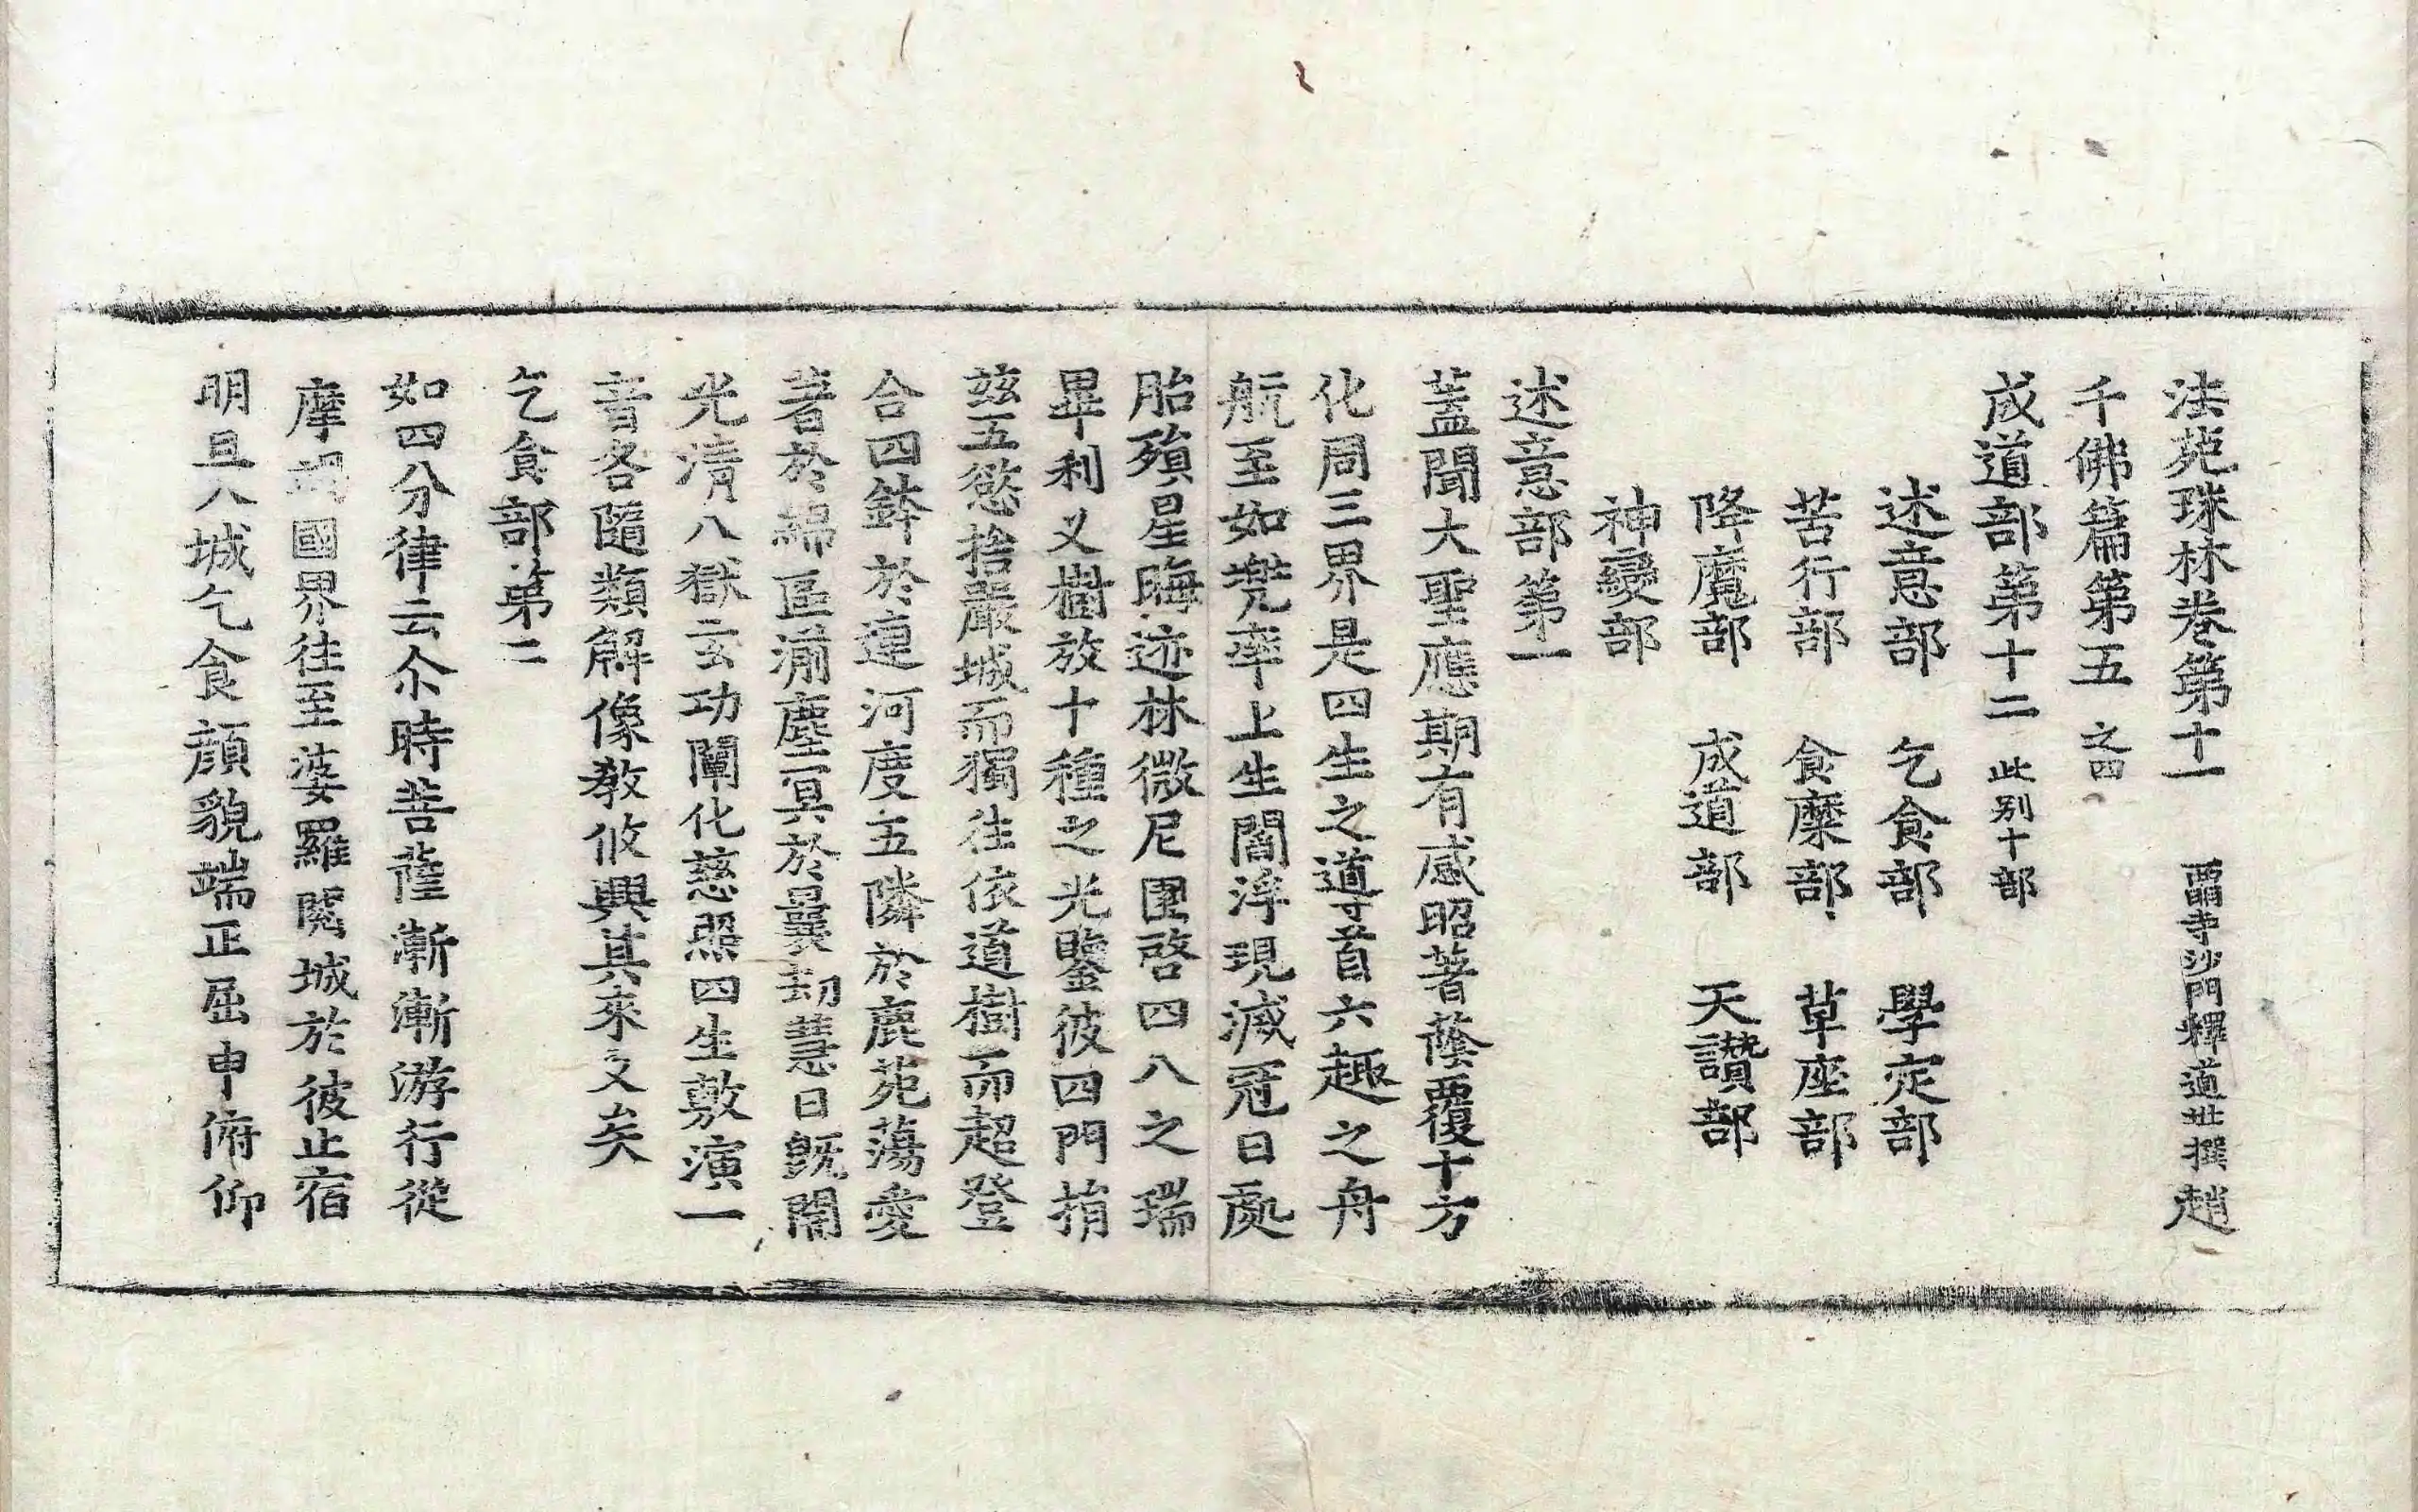 法苑珠林卷第十一 西明寺沙門釋道世撰 趙
千佛篇第五之四
成道部第十二此别十部
述意部 乞食部 學定部
苦行部 食糜部 草座部
降魔部 成道部 天讚部
神變部
述意部第一
蓋聞大聖應期有感昭著蔭覆十方
化周三界是四生之導首六趣之舟
航至如兠率上生閻浮現滅冠日處
胎殞星晦迹林微尼園啓四八之瑞
畢利叉樹放十種之光鑒彼四門捐
兹五慾捨嚴城而獨往依道樹而超登
合四鉢於連河度五隣於鹿苑蕩愛
著於緜區澌塵冥於曩劫慧日既開
光清八獄玄功闡化慈照四生敷演一
音各隨類解像教攸興其來久矣
乞食部第二
如四分律云尒時菩薩漸漸游行從
摩竭國界往至婆羅閲城於彼止宿
明旦入城乞食顔貌端正屈申俯仰